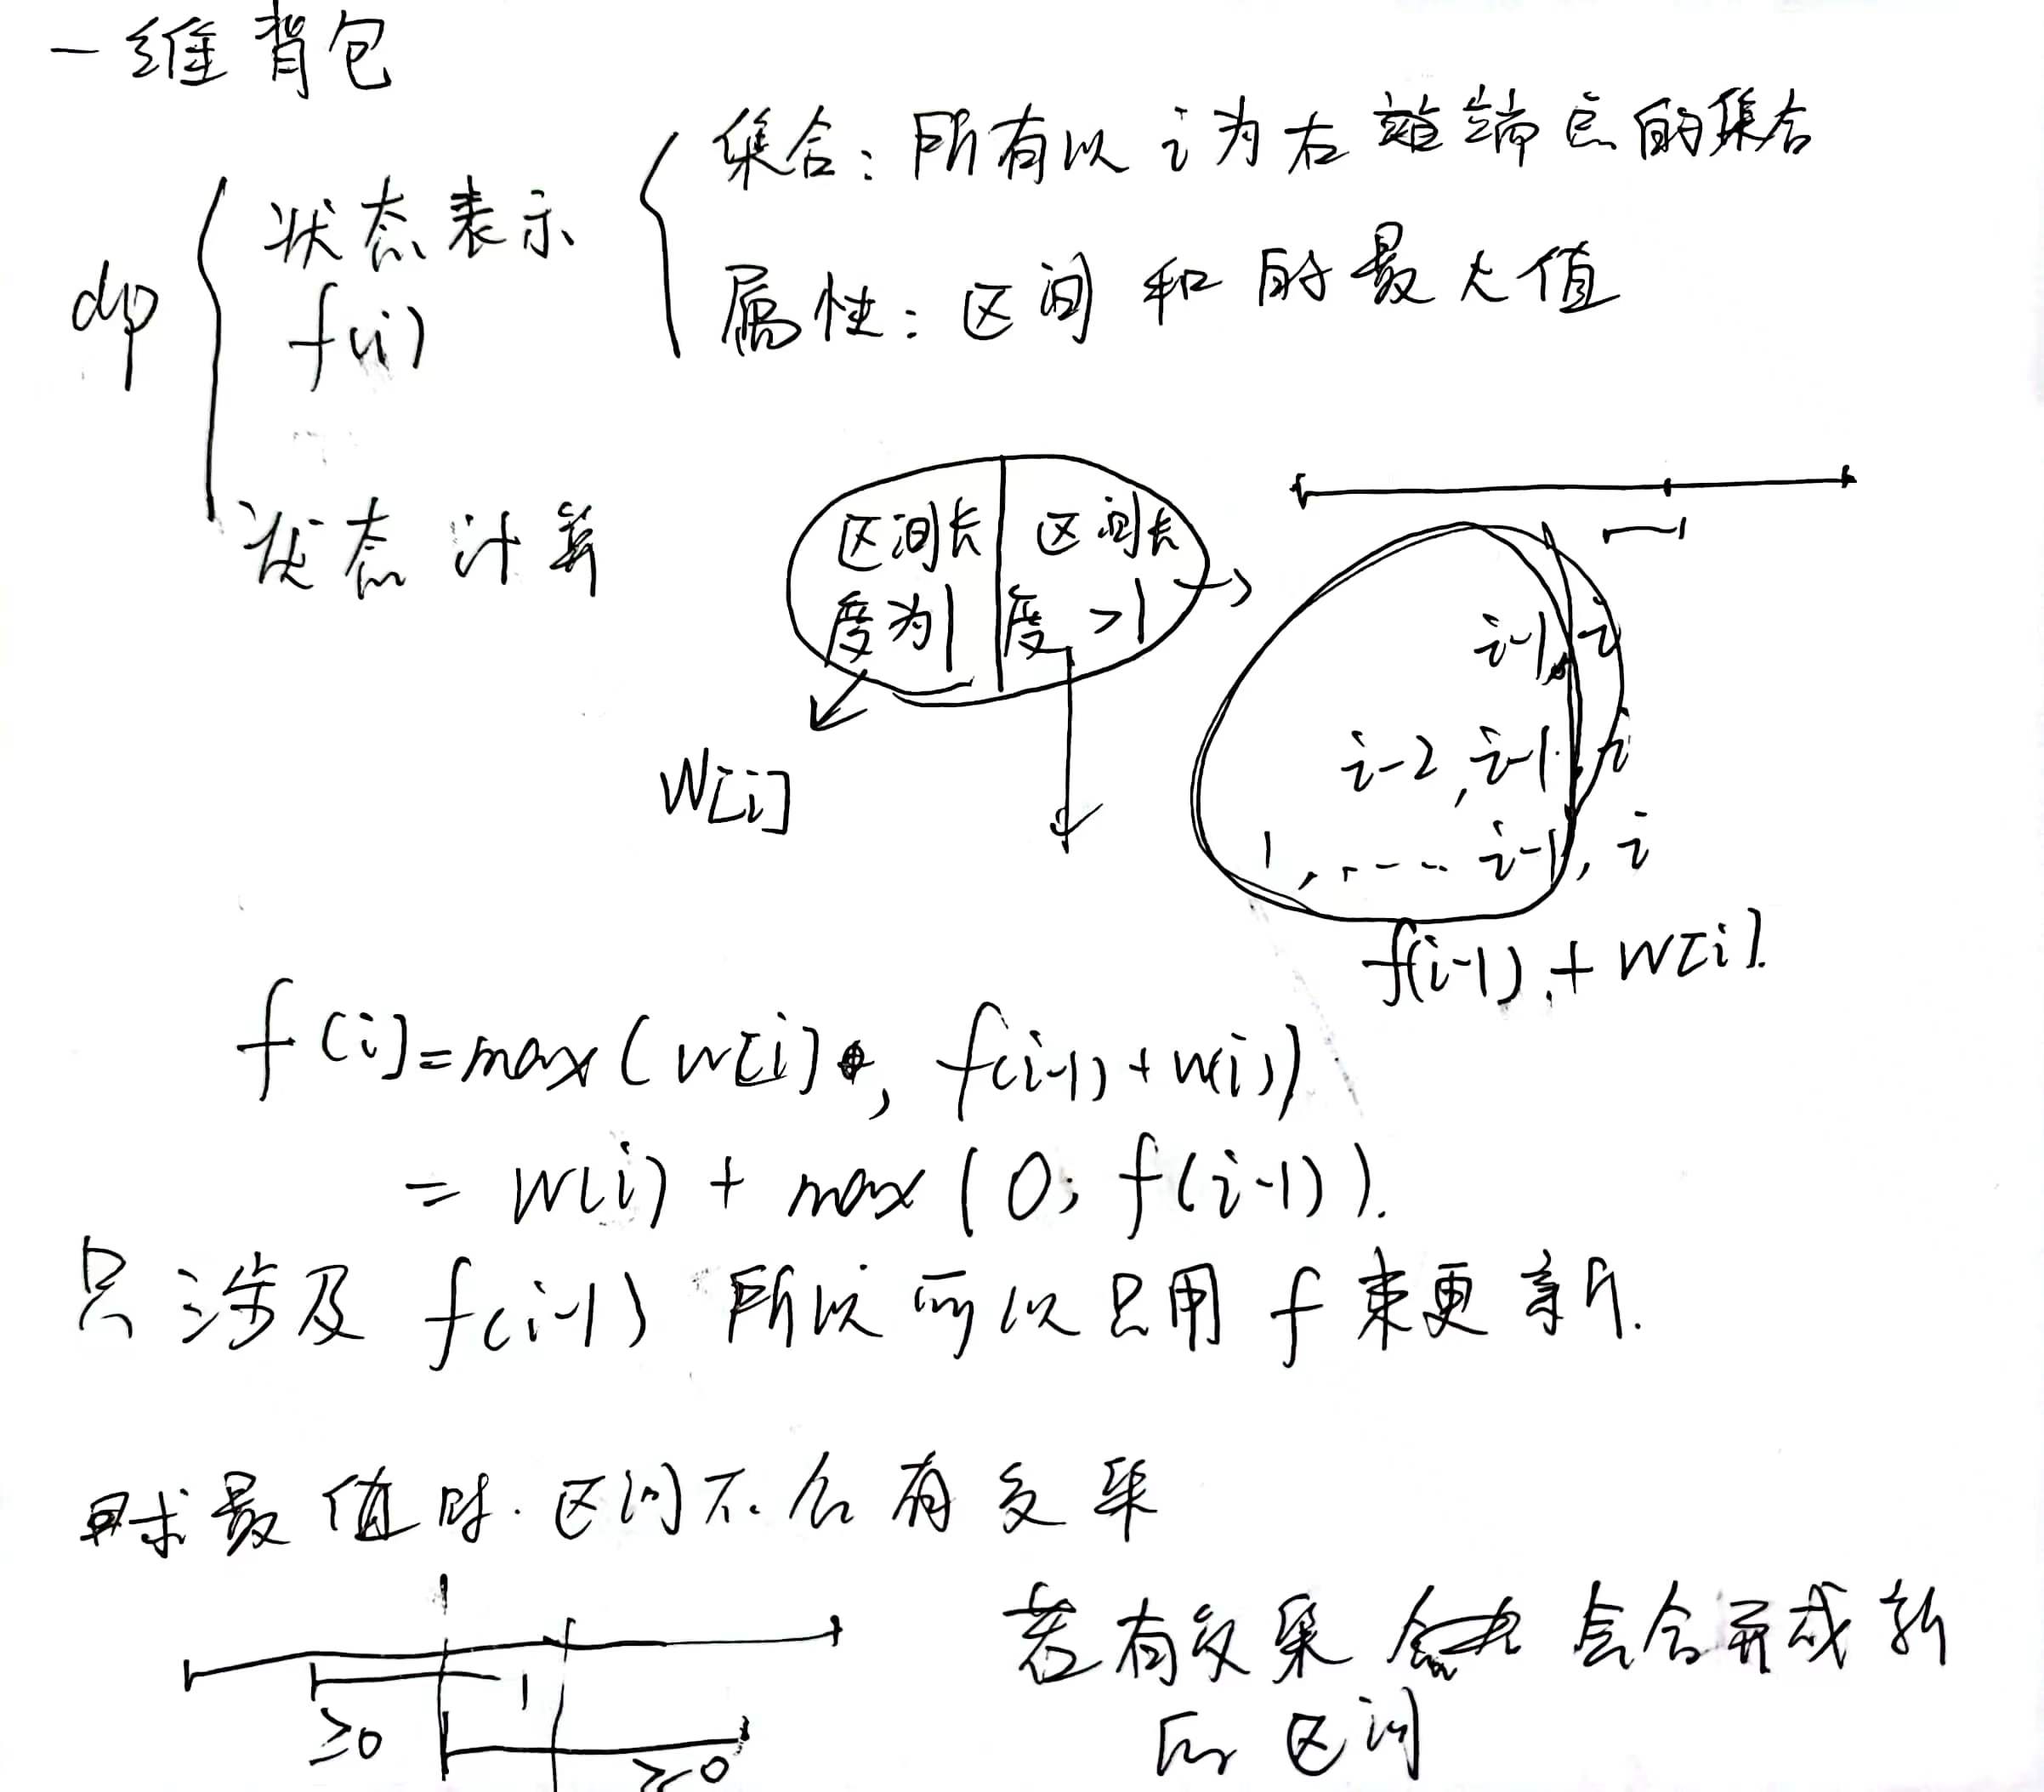 一维背包
集合：所有以 i 为右端点的集合
状态表示
f(i)
dp
属性：区间和的最大值
状态计算
区间长度为1
区间长度>1
W[i]
i-1, i
i-2, i-1, i
1, ..... i-1, i
f(i-1) + W[i].
f[i]=max(w[i], f(i-1)+w(i))
= W(i) + max(0, f(i-1)).
只涉及 f(i-1) 所以可以只用 f 来更新.
求最值时. 区间不会有交集
若有交集 会合并成新
的区间
≥0
≥0